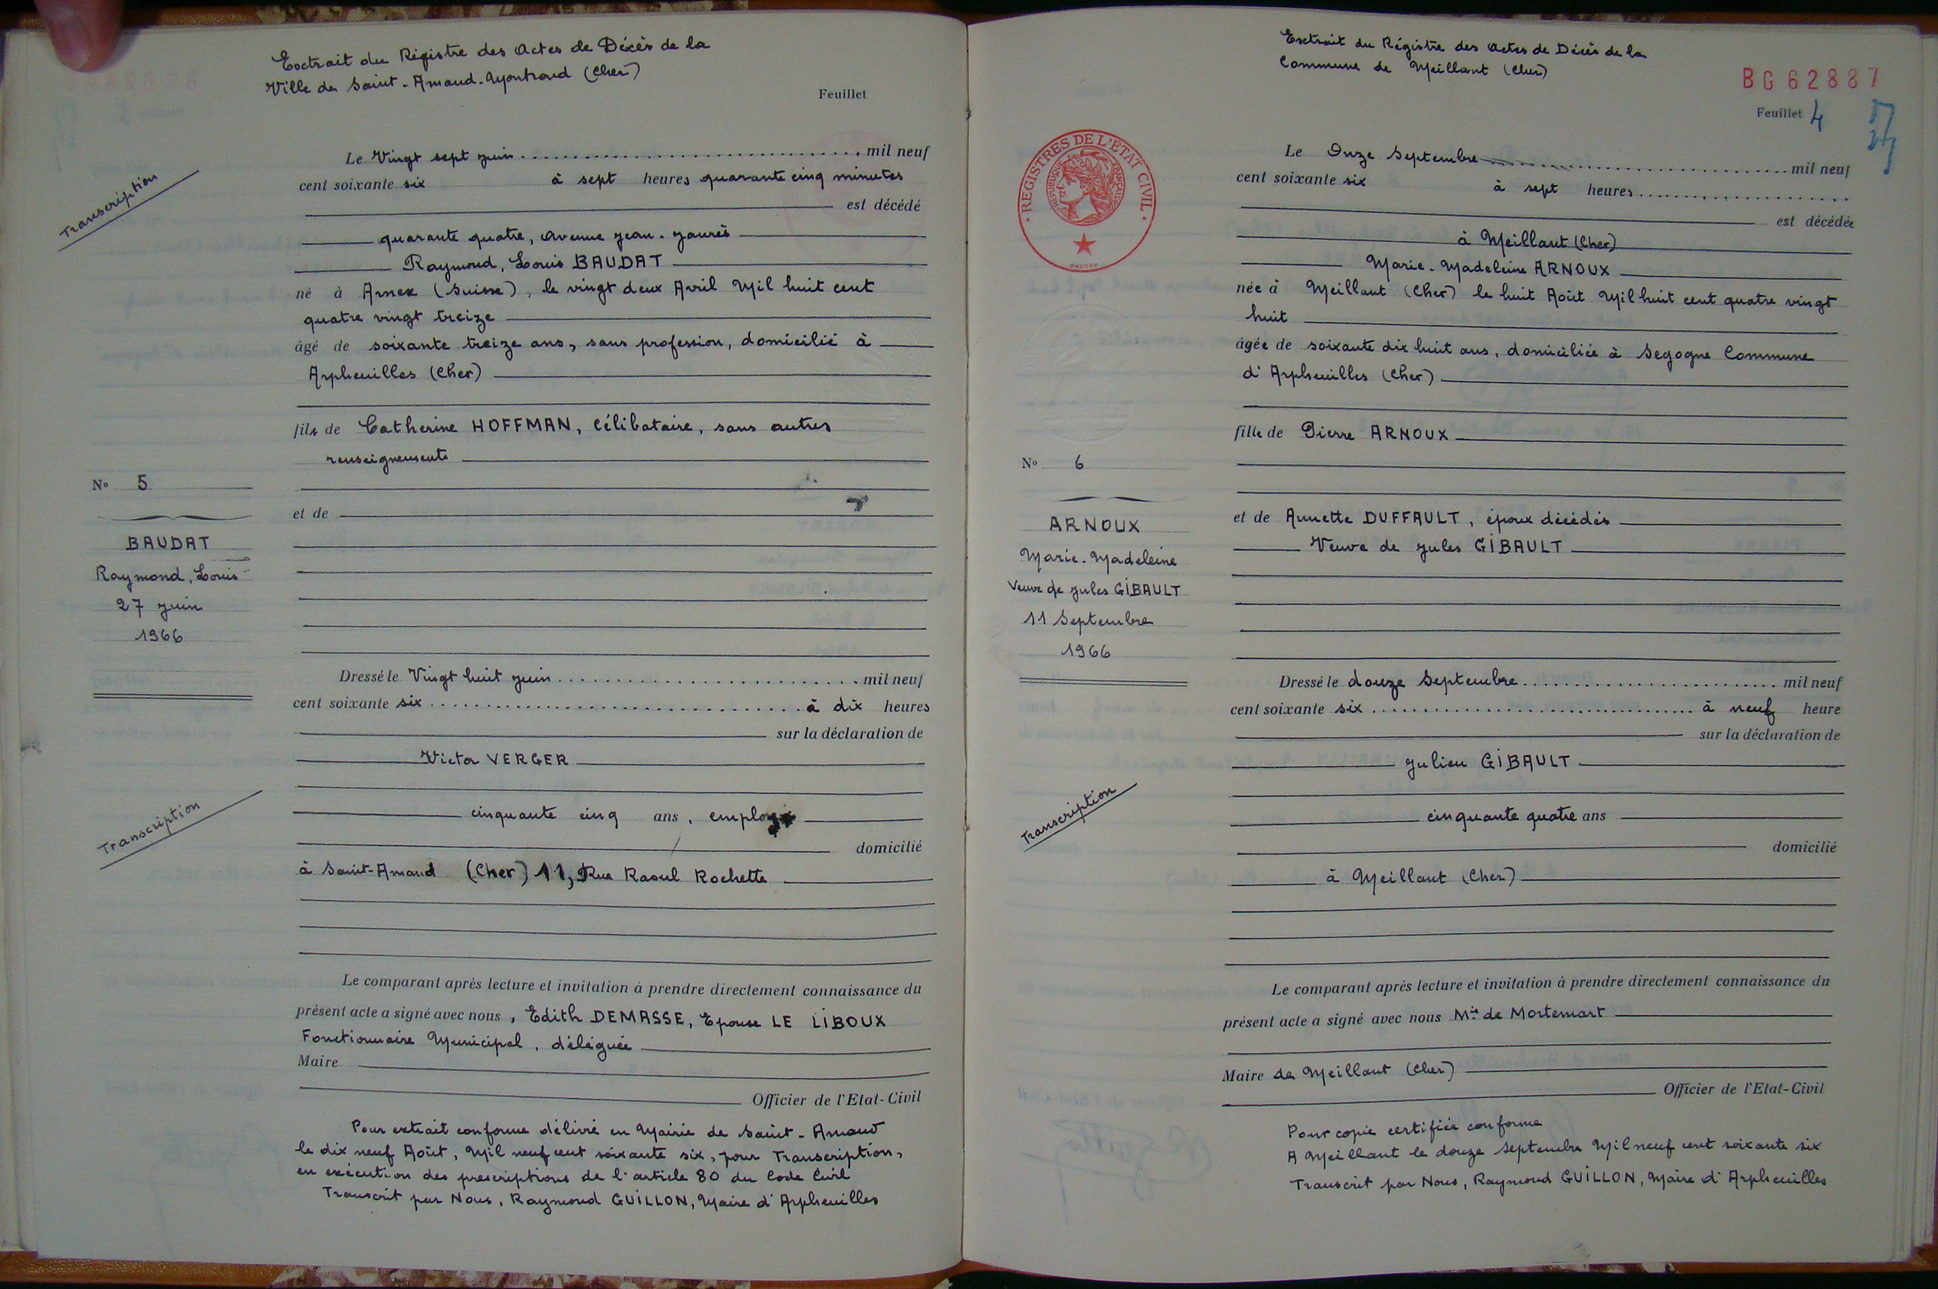 Extrait du Régistre des Actes de Décès de la
Ville de Saint-Amand-Montrond (Cher)
Feuillet
Transcription
Le Vingt sept juin mil neuf
cent soixante six à sept heures quarante cinq minutes
est décédé
quarante quatre, Avenue Jean-Jaurès
Raymond, Louis BAUDAT
né à Arnex (Suisse), le vingt deux Avril Mil huit cent
quatre vingt treize
âgé de soixante treize ans, sans profession, domicilié à
Arpheuilles (Cher)
fils de Catherine HOFFMAN, célibataire, sans autres
renseignements
N° 5
et de
BAUDAT
Raymond, Louis
27 juin
1966
Dressé le Vingt huit juin mil neuf
cent soixante six à dix heures
sur la déclaration de
Victor VERGER
Transcription
cinquante cinq ans, employé
domicilié
à Saint-Amand (Cher) 11, Rue Raoul Rochette
Le comparant après lecture et invitation à prendre directement connaissance du
présent acte a signé avec nous, Edith DEMASSE, Epouse LE LIBOUX
Fonctionnaire Municipal, déléguée
Maire
Officier de l'Etat-Civil
Pour extrait conforme délivré en Mairie de Saint-Amand
le dix neuf Août, Mil neuf cent soixante six, pour Transcription,
en exécution des prescriptions de l'article 80 du Code Civil
Transcrit par Nous, Raymond GUILLON, Maire d'Arpheuilles
Extrait du Régistre des Actes de Décès de la
Commune de Meillant (Cher)
BG 62887
Feuillet 4
REGISTRES DE L'ÉTAT CIVIL
RÉPUBLIQUE FRANÇAISE
Le Onze Septembre mil neuf
cent soixante six à sept heures
est décédée
à Meillant (Cher)
Marie-Madeleine ARNOUX
née à Meillant (Cher) le huit Août Mil huit cent quatre vingt
huit
âgée de soixante dix huit ans, domiciliée à Segogne Commune
d'Arpheuilles (Cher)
fille de Pierre ARNOUX
N° 6
ARNOUX
Marie-Madeleine
Veuve de Jules GIBAULT
11 Septembre
1966
et de Annette DUFFAULT, époux décédés
Veuve de Jules GIBAULT
Dressé le douze Septembre mil neuf
cent soixante six à neuf heure
sur la déclaration de
Julien GIBAULT
Transcription
cinquante quatre ans
domicilié
à Meillant (Cher)
Le comparant après lecture et invitation à prendre directement connaissance du
présent acte a signé avec nous Mis de Mortemart
Maire de Meillant (Cher)
Officier de l'Etat-Civil
Pour copie certifiée conforme
A Meillant le douze Septembre Mil neuf cent soixante six
Transcrit par Nous, Raymond GUILLON, Maire d'Arpheuilles